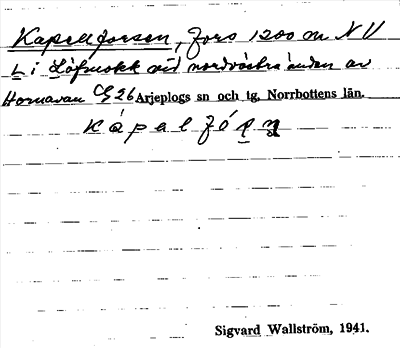 Kapellforsen, fors 1200 m NV
L i Löfmokk vid nordvästra änden av
Hornavan Cg 26 Arjeplogs sn och tg, Norrbottens län.
kápalfóṣṇ
Sigvard Wallström, 1941.